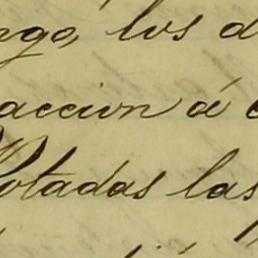 ngo, los d
accion á c
Rotadas las